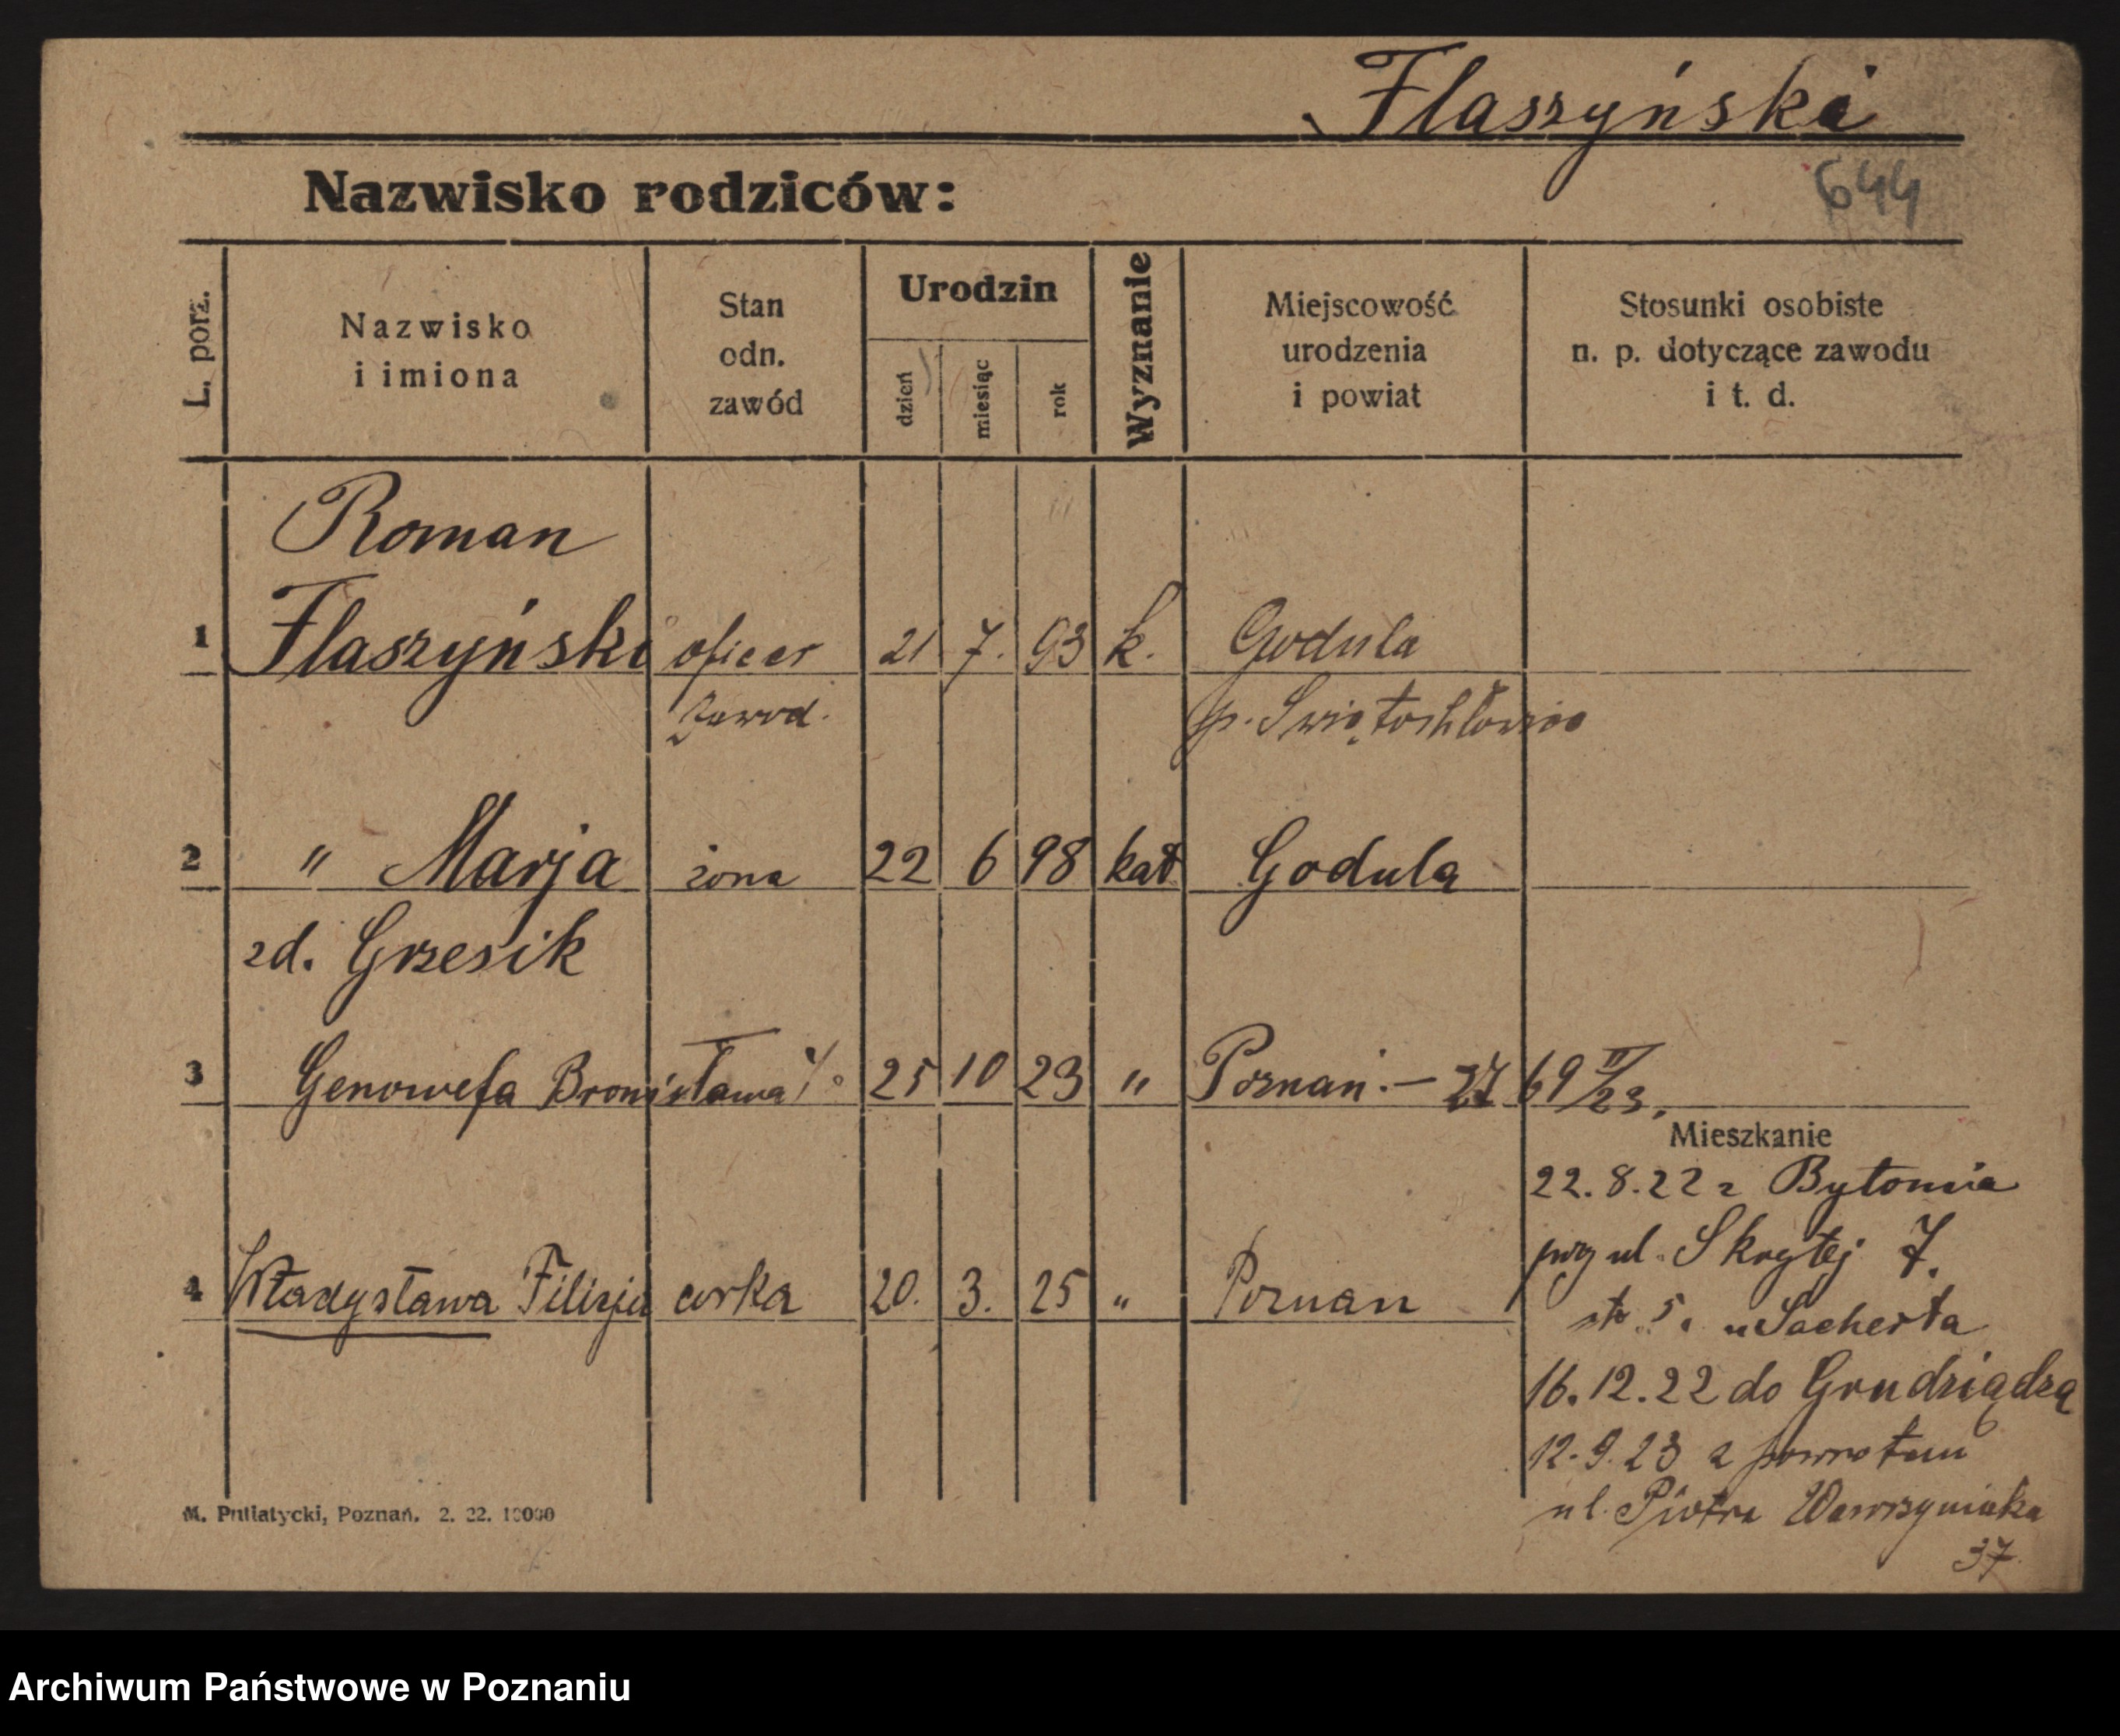 Flaszyński
Nazwisko rodziców:
644
L. porz.
Nazwisko
i imiona
Stan
odn.
zawód
Urodzin
dzień
miesiąc
rok
Wyznanie
Miejscowość
urodzenia
i powiat
Stosunki osobiste
n. p. dotyczące zawodu
i t. d.
Roman
1 Flaszyński oficer 21 7. 93 k. Godula
zawod. p. Świętochłowice
2 " Marja żona 22 6 98 kat Godula
zd. Grzesik
3 Genowefa Bronisława 25 10 23 " Poznań. — 69 II/23.
Mieszkanie
22. 8. 22 z Bytomia
przy ul. Skrytej 7.
4 Władysława Filicja córka 20. 3. 25 " Poznań
5. u Sacherta
16. 12. 22 do Grudziądza
12. 9. 23 z powrotem
ul. Piotra Wawrzyniaka
37
M. Putiatycki, Poznań. 2. 22. 10000
Archiwum Państwowe w Poznaniu